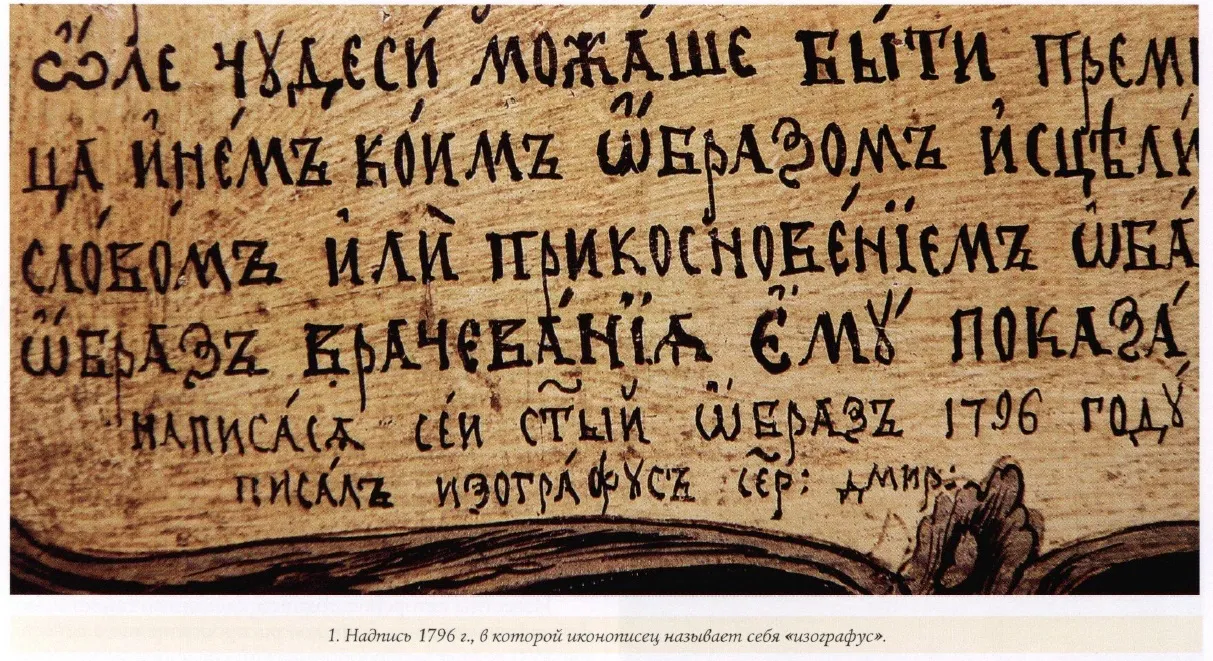 ѽле чꙋдесѝ можа́ше бы́ти прем
ца и҆не́мъ ко́имъ ѡ҆́бразомъ и҆сцѣли́
сло́вомъ и҆лѝ прикоснове́нїемъ ѡ҆ба́
ѡ҆́бразъ врачева́нїѧ є҆мꙋ̀ показа́
написа́сѧ се́и ст҃ы́й ѡ҆́бразъ 1796 годꙋ̀
писа́лъ изогра́фꙋсъ се҃р: дмир:
1. Надпись 1796 г., в которой иконописец называет себя «изографус».